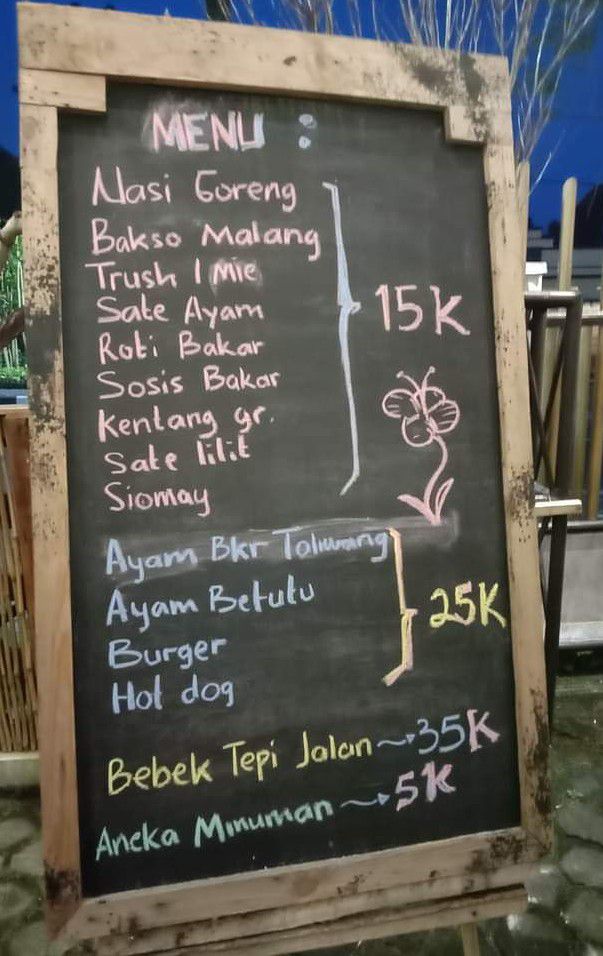 MENU :
Nasi Goreng
Bakso Malang
Trush 1 Mie
Sate Ayam
Roti Bakar
Sosis Bakar
Kentang gr.
Sate lilit
Siomay
15K
Ayam Bkr Toliwang
Ayam Betutu
Burger
Hot dog
25K
Bebek Tepi Jalan → 35K
Aneka Minuman → 5K